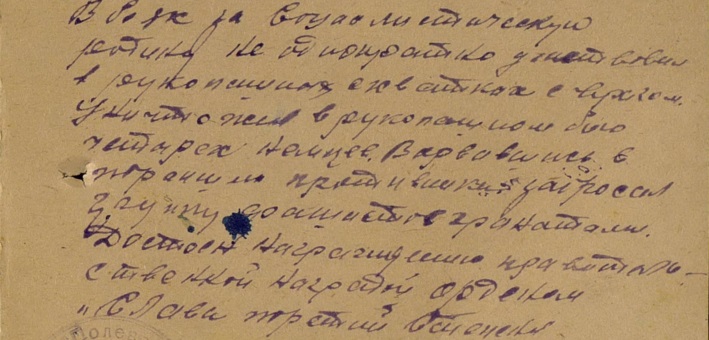 В боях за Социалистическую
родину не однократно участвовал
в рукопашных схватках с врагом.
Уничтожил в рукопашном бою
четырех немцев. Ворвавшись в
траншею противника забросал
группу фашистов гранатами.
Достоен награждению правитель-
ственной наградой орденом
"Слава третий степени